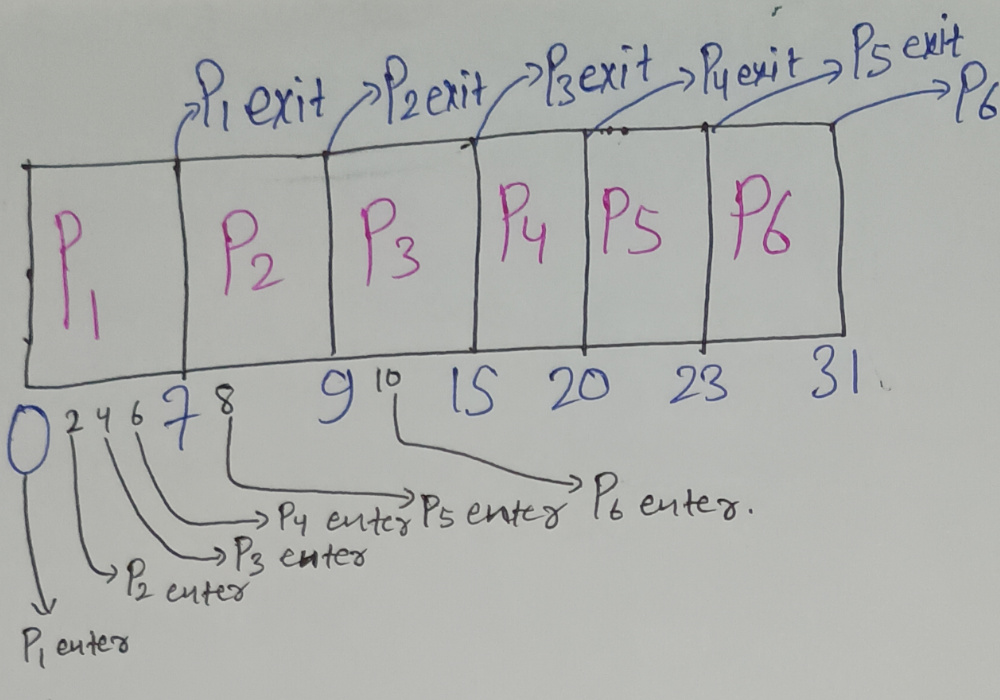 P1 exit P2 exit P3 exit P4 exit P5 exit P6
P1 P2 P3 P4 P5 P6
0 2 4 6 7 8 9 10 15 20 23 31
P4 enter P5 enter P6 enter.
P3 enter
P2 enter
P1 enter